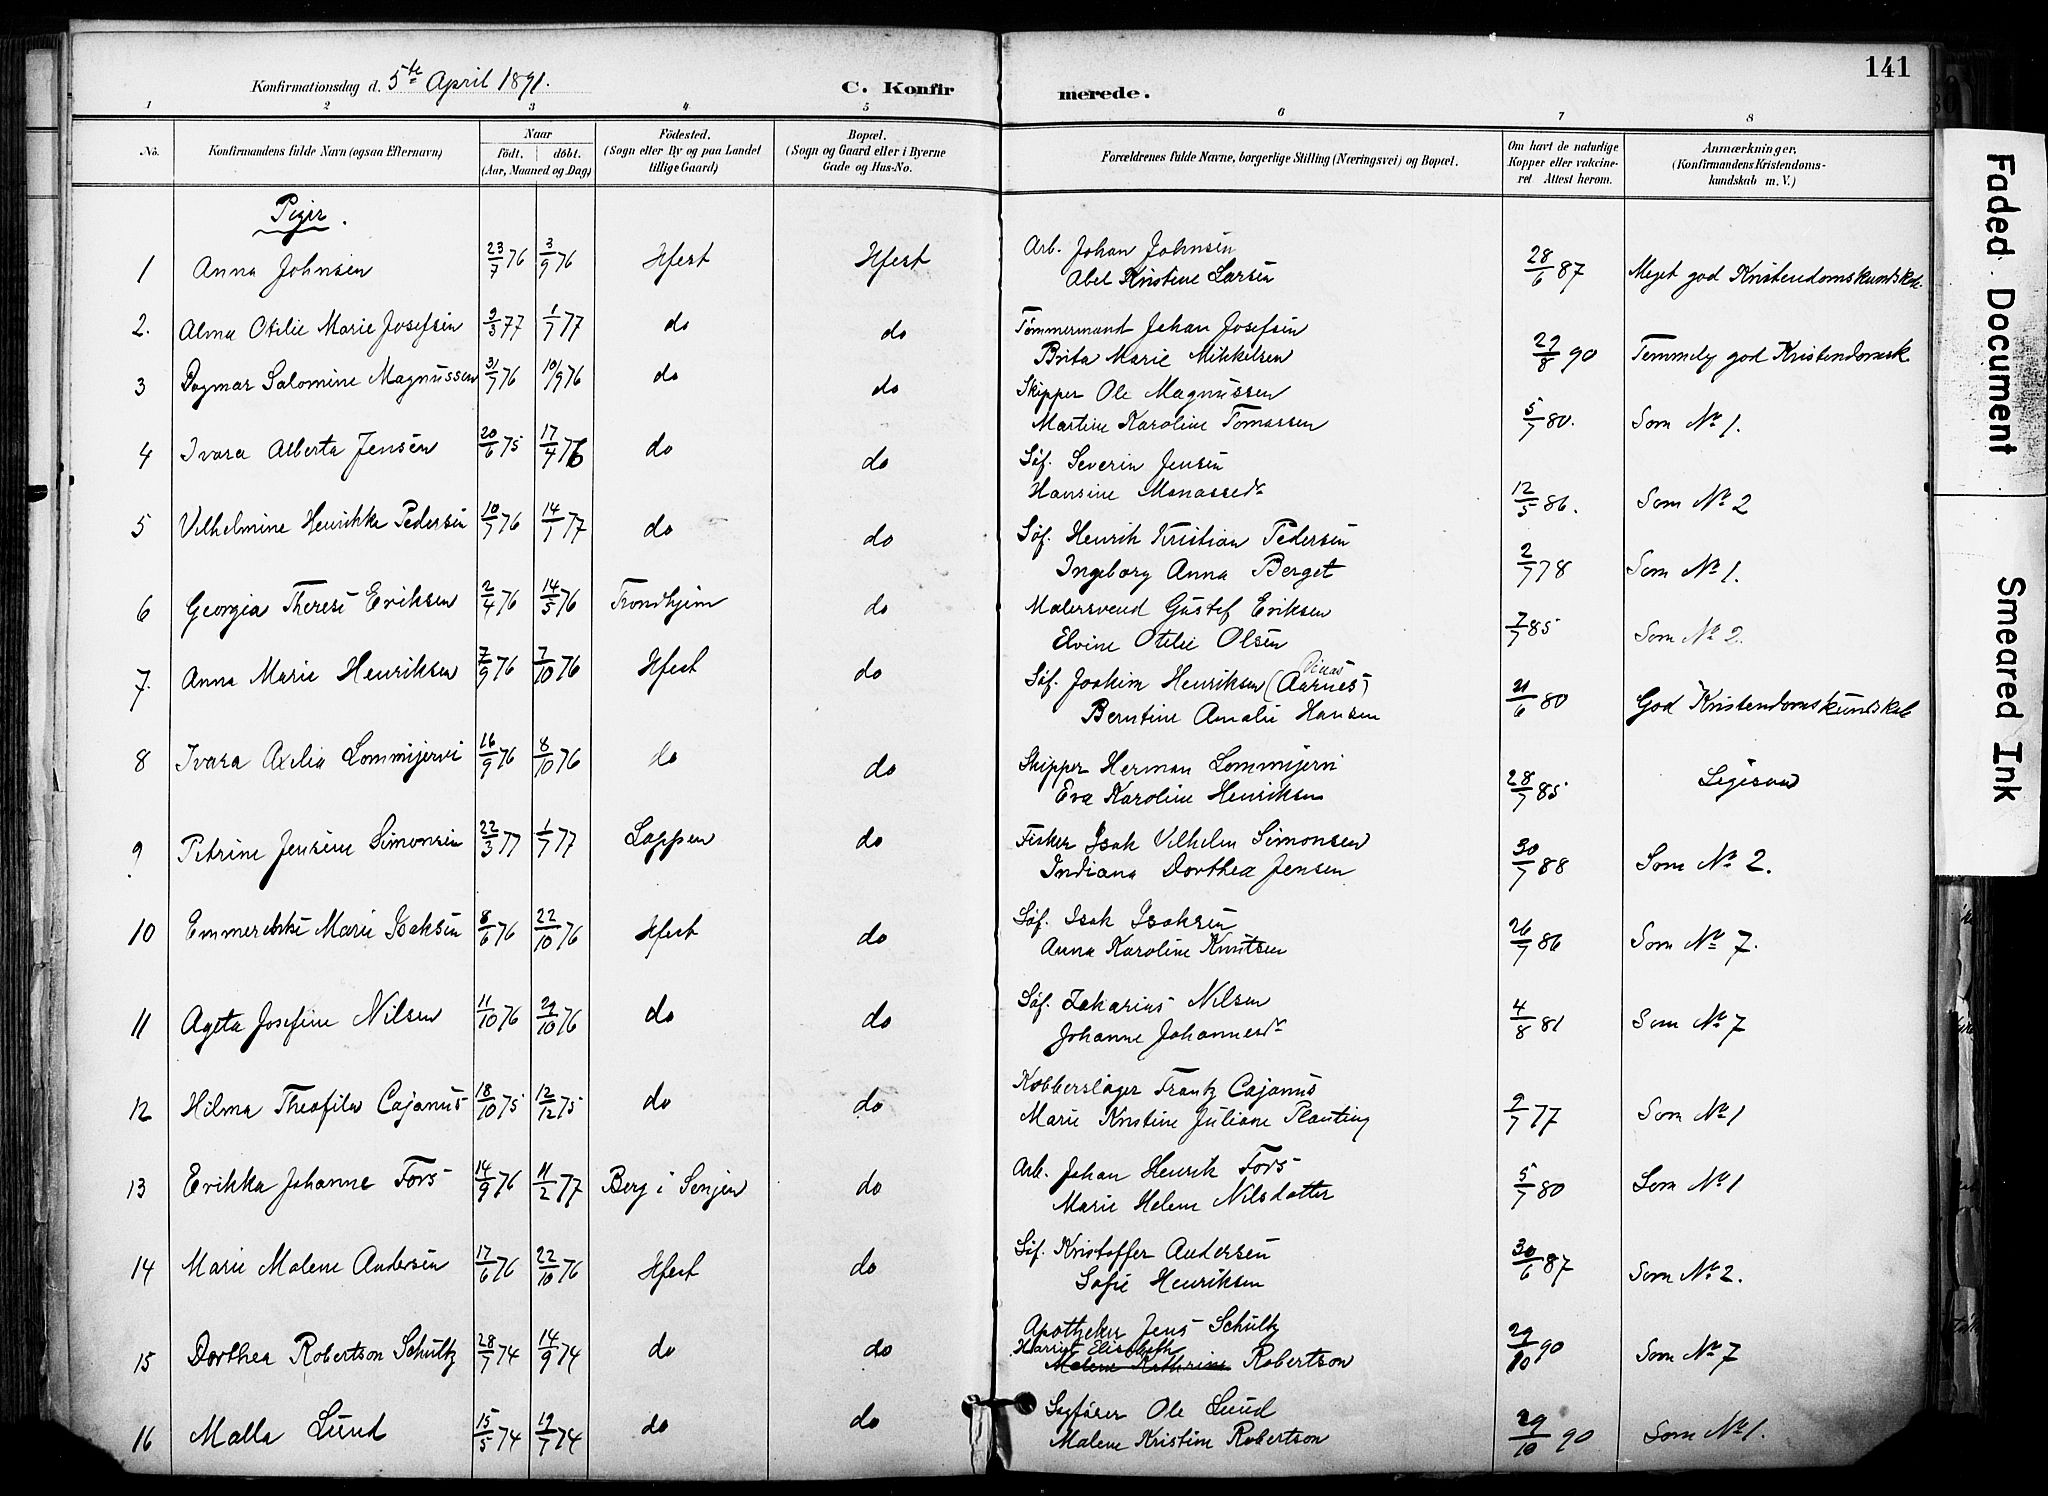 141
Konfirmationsdag d. 5te April 1891.
C. Konfirmerede.
1 2 3 4 5 6 7 8
No.
Konfirmandens fulde Navn (ogsaa Efternavn)
Naar
født. døbt.
(Aar, Maaned og Dag)
Fødested.
(Sogn eller By og paa Landet
tillige Gaard)
Bopæl.
(Sogn og Gaard eller i Byerne
Gade og Hus-No.
Forældrenes fulde Navne, borgerlige Stilling (Næringsvei) og Bopæl.
Om havt de naturlige
Kopper eller vakcine-
ret Attest herom.
Anmærkninger,
(Konfirmandens Kristendoms-
kundskab m. V.)
Piger.
1 Anna Johnsen 23/7 76 3/9 76 Hfest Hfest Arb. Johan Johnsen
Abel Kristine Larsen 28/6 87 Meget god Kristendomskundskab.
2. Alma Otilie Marie Josefsen 2/3 77 1/7 77 do do Tømmermand Johan Josefsen
Brita Marie Mikkelsen 29/8 90 Temmely god Kristendomsk
3 Dagmar Salomine Magnussen 31/7 76 10/9 76 do do Skipper Ole Magnussen
Martine Karoline Tomassen 5/7 80. Som No 1.
4 Ivara Alberta Jensen 20/6 75 17/4 76 do do Søf. Severin Jensen
Hansine Manassedr 12/5 86. Som No 2
5 Vilhelmine Henrikke Pedersen 10/7 76 14/1 77 do do Søf. Henrik Kristian Pedersen
Ingeborg Anna Berget 2/7 78 Som No 1.
6 Georgia Therese Eriksen 2/4 76 14/5 76 Trondhjem do Malersvend Gustef Eriksen
Elvine Otilie Olsen 7/7 85 Som No 2.
7. Anna Marie Henriksen 7/9 76 7/10 76 Hfest do Søf. Joakim Henriksen (Aarnes)
Berntine Amalie Hansen 21/6 80 God Kristendomskundskab
8 Ivara Axelia Lommijervi 16/9 76 8/10 76 do do Skipper Herman Lommijervi
Eva Karoline Henriksen 28/7 85 Ligesaa
9. Petrine Jensine Simonsen 22/3 77 1/7 77 Loppen do Fisker Isak Vilhelm Simonsen
Indiana Dorthea Jensen 30/7 88 Som No 2.
10 Emmerentse Marie Isaksen 8/6 76 22/10 76 Hfest do Søf. Isak Isaksen
Anna Karoline Knutsen 26/7 86 Som No 7.
11 Ageta Josefine Nilsen 11/10 76 29/10 76 do do Søf. Zakarias Nilsen
Johanne Johannesdr 4/8 81 Som No 7
12 Hilma Theofila Cajanus 18/10 75 12/12 75 do do Kobberslager Frantz Cajanus
Marie Kristine Juliane Planting 9/7 77 Som No 1
13 Erikka Johanne Fors 14/9 76 11/2 77 Berg i Senjen do Arb. Johan Henrik Fors
Marie Helene Nilsdatter 5/7 80 Som No 1
14 Marie Malene Andersen 17/6 76 22/10 76 Hfest do Søf. Kristoffer Andersen
Sofie Henriksen 30/6 87 Som No 2.
15 Dorthea Robertson Schultz 28/7 74 14/9 74 do do Apotheker Jens Schultz
Harriet Elisabeth
Malene Kathrine Robertson 29/10 90 Som No 7
16 Malla Lund 15/5 74 19/7 74 do do Sagfører Ole Lund
Malene Kristine Robertson 29/10 90 Som No 1.
Faded Document
Smeared Ink